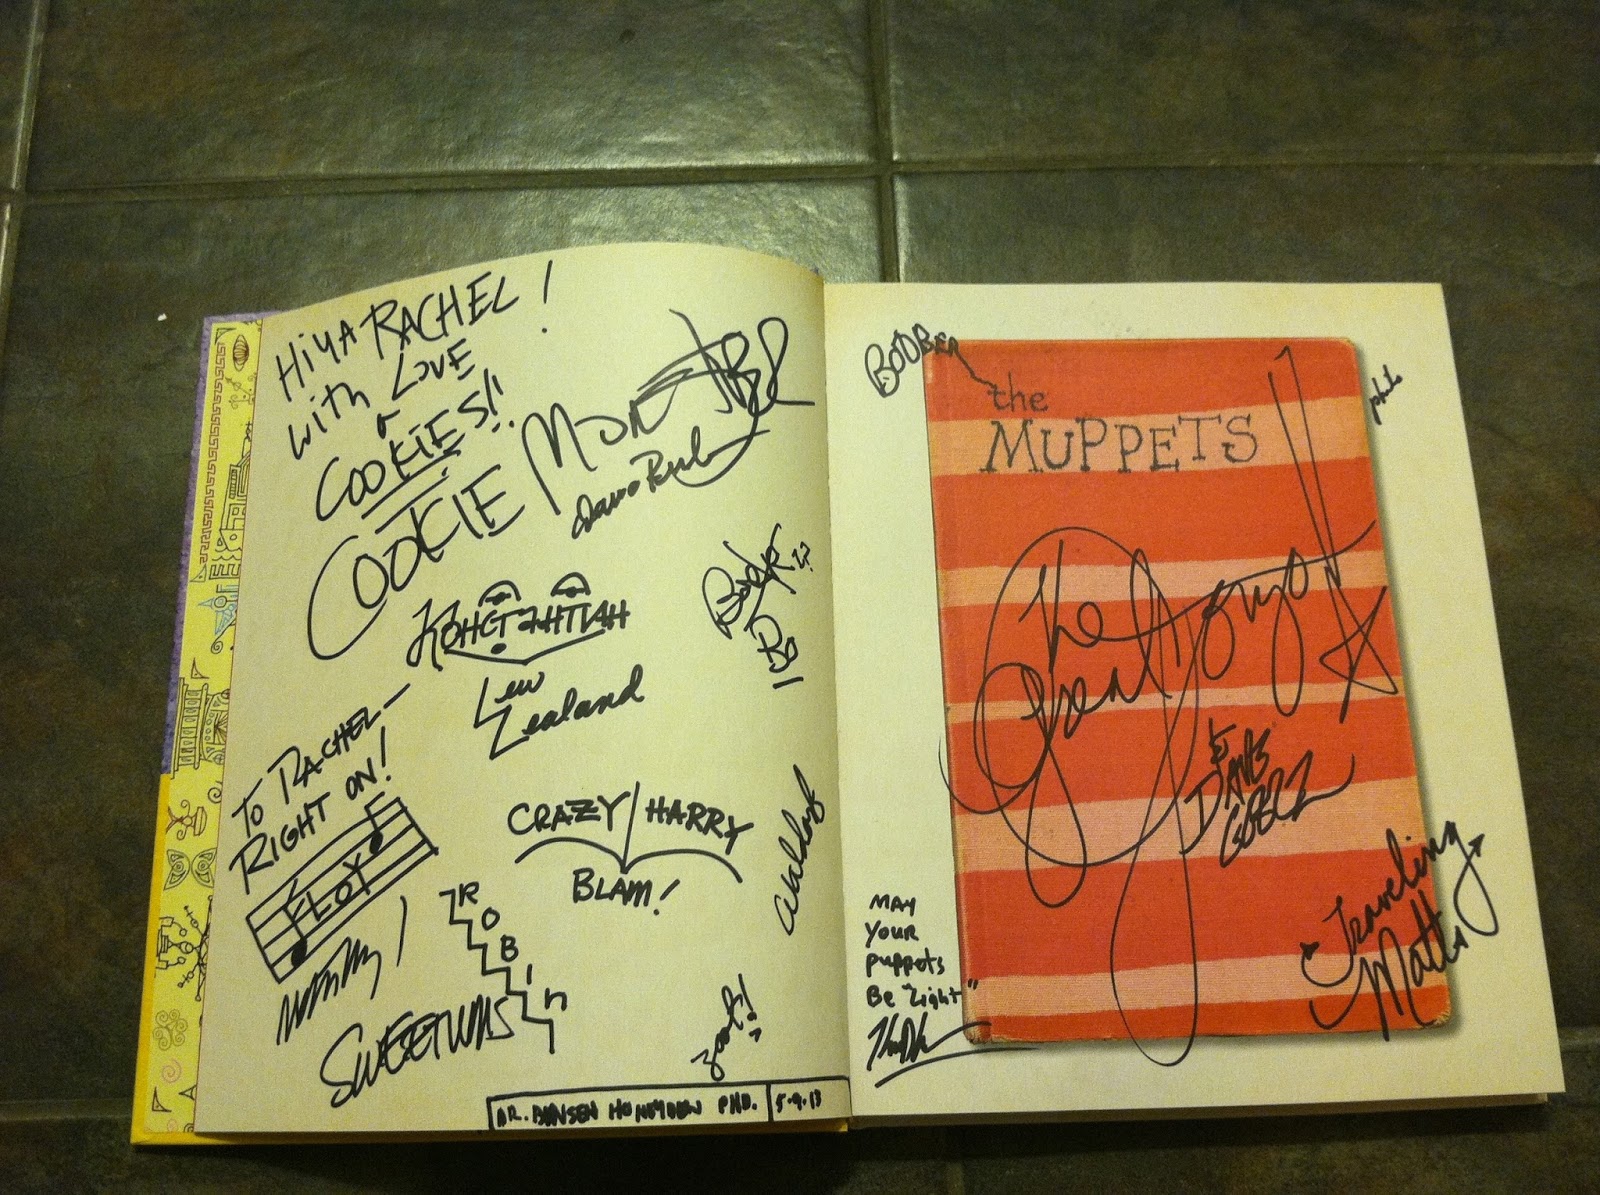 HiYA RACHEL!
with LOVE
&
COOKiES!!
COOKIE MONSTER
Lew
Zealand
TO RACHEL—
RIGHT ON!
FLOYD
CRAZY HARRY
BLAM!
ROBIN
SWEETUMS
Waldorf
Zoot!
DR. BUNSEN HONEYDEW PHD. 5.9.13
BOOBER
the
MUPPETS
The Great Gonzo!
&
DAVE
GOELZ
Traveling
Matt
MAY
YOUR
puppets
BE "Light"